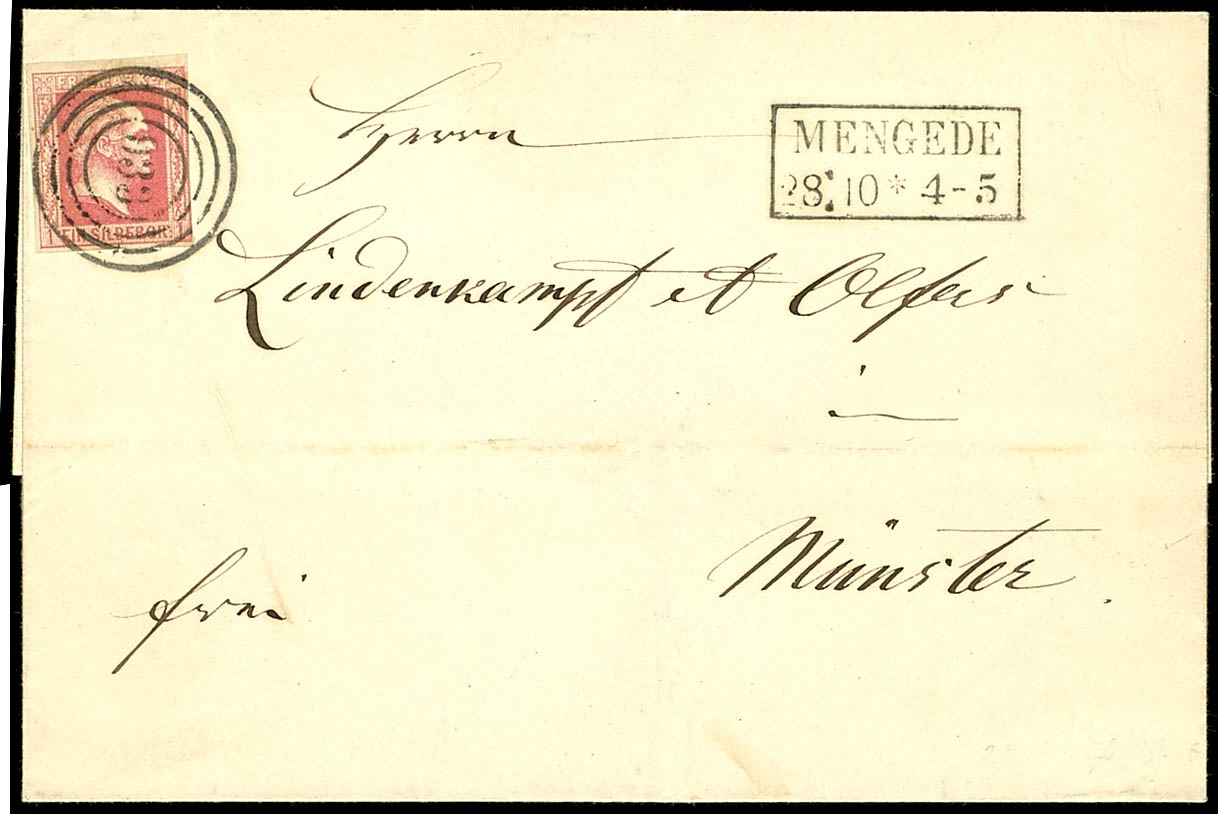 FREIMARKE
933
1 EIN SILBERGR: 1
MENGEDE
28.10 * 4-5
Herrn
Lindenkampf et Olfers
in
Münster.
frei